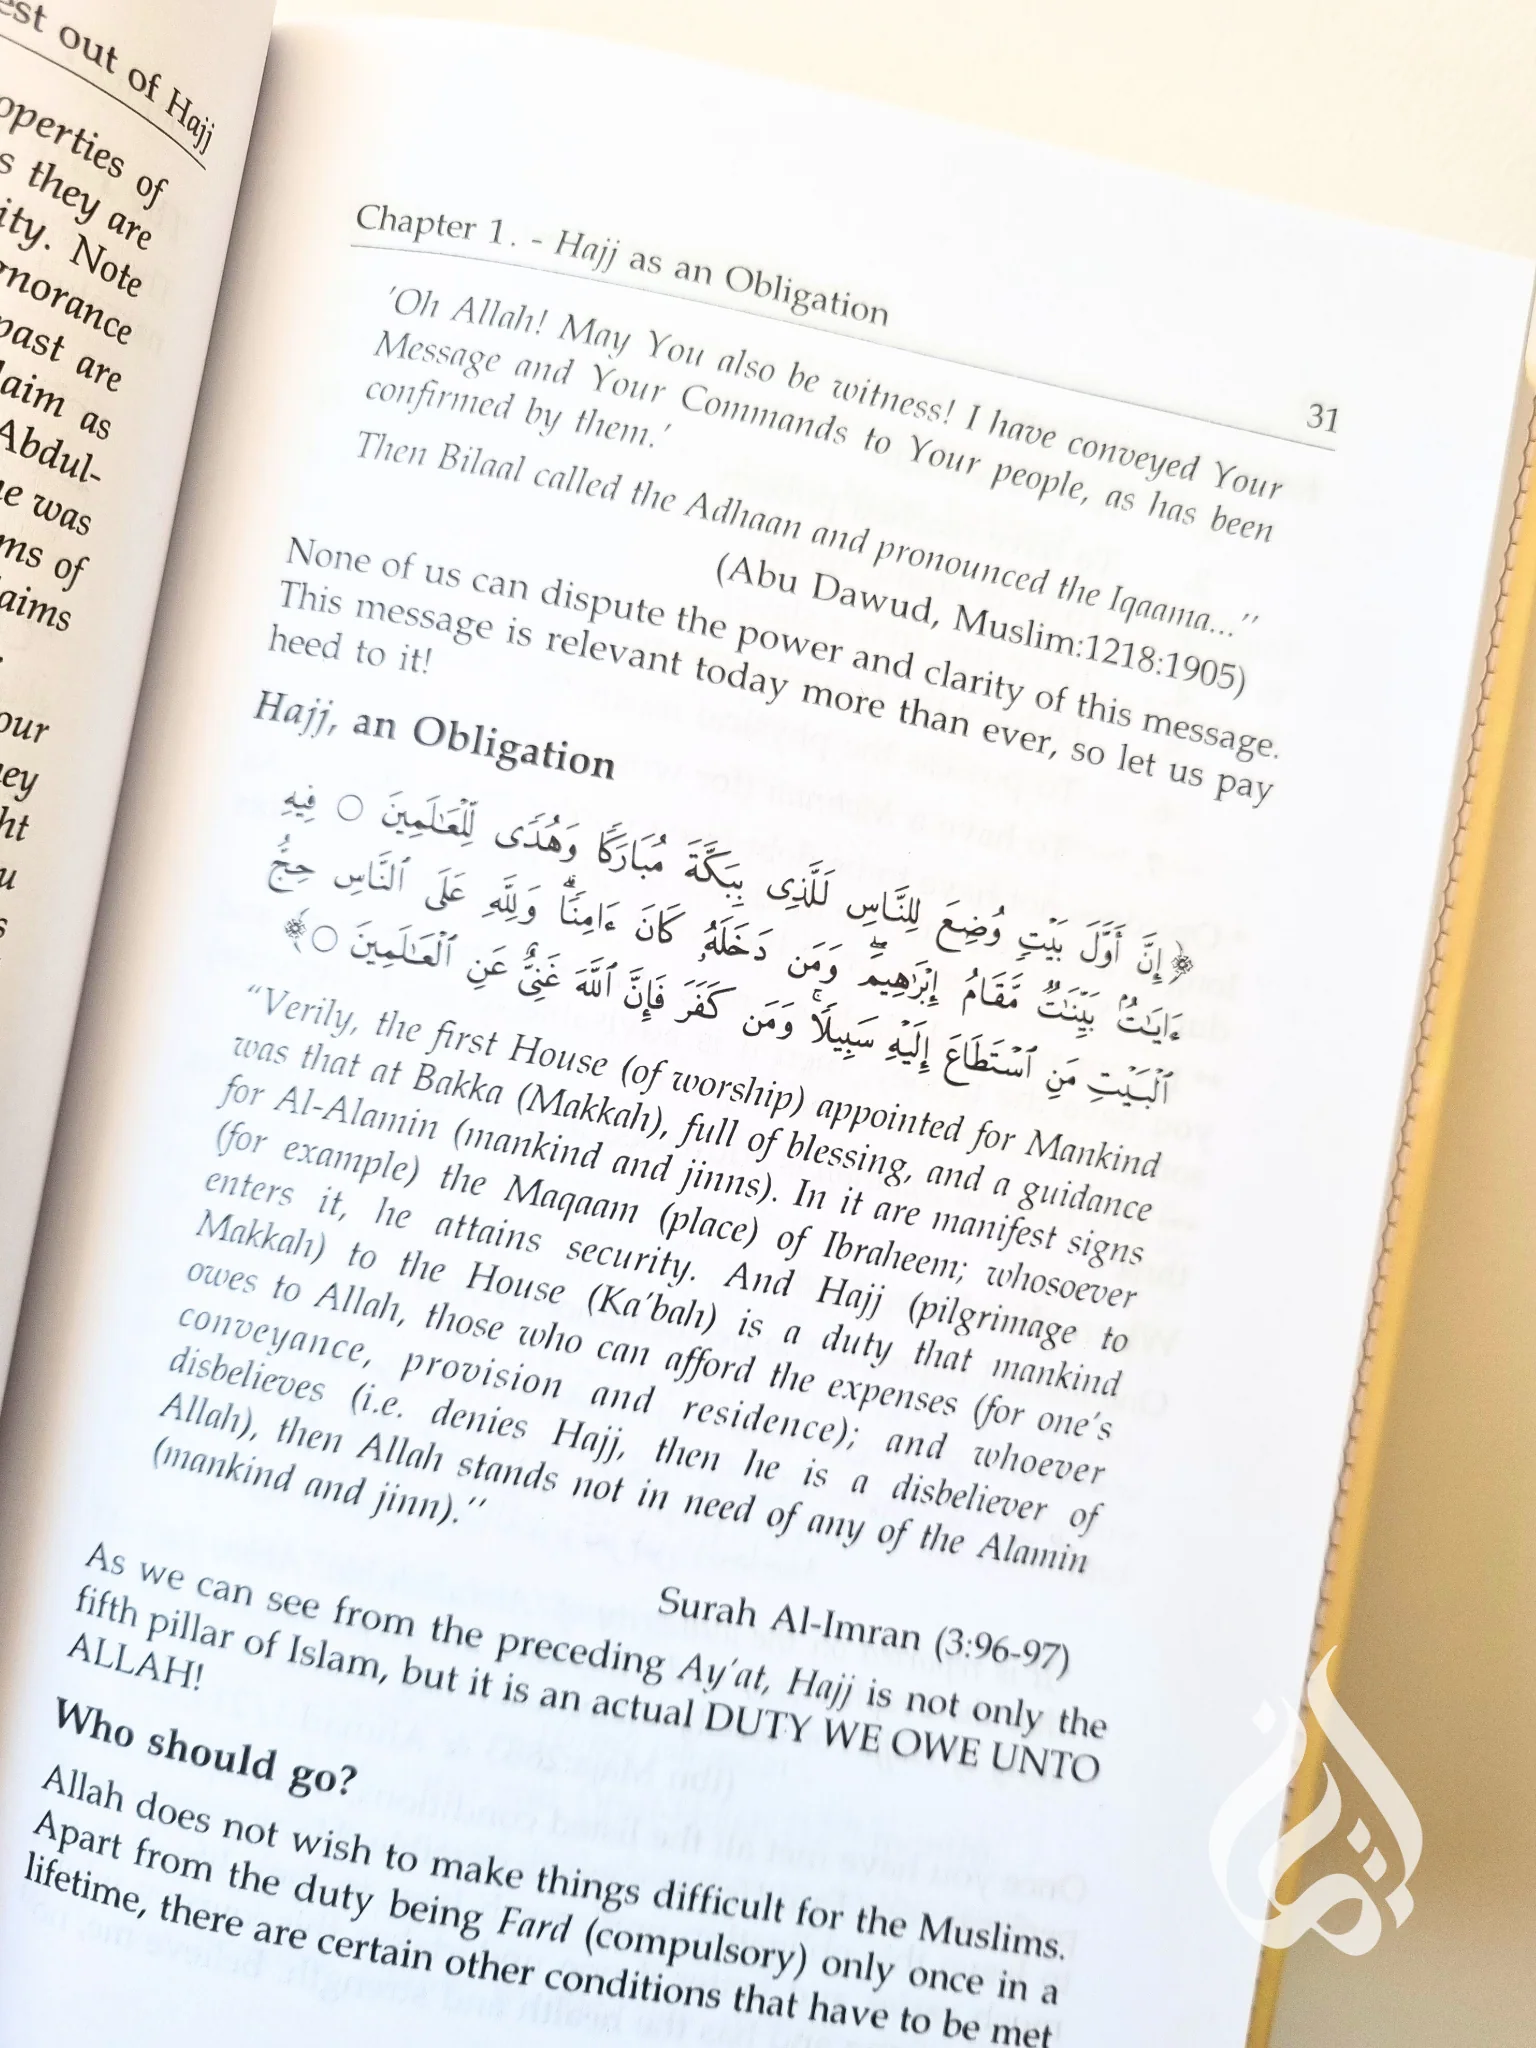 est out of Hajj
operties of
s they are
ity. Note
gnorance
past are
laim as
Abdul-
ne was
ms of
laims
our
ney
ht
u
s
Chapter 1. - Hajj as an Obligation 31
'Oh Allah! May You also be witness! I have conveyed Your
Message and Your Commands to Your people, as has been
confirmed by them.'
Then Bilaal called the Adhaan and pronounced the Iqaama...''
(Abu Dawud, Muslim:1218:1905)
None of us can dispute the power and clarity of this message.
This message is relevant today more than ever, so let us pay
heed to it!
Hajj, an Obligation
﴿إِنَّ أَوَّلَ بَيۡتٖ وُضِعَ لِلنَّاسِ لَلَّذِى بِبَكَّةَ مُبَارَكٗا وَهُدٗى لِّلۡعَٰلَمِينَ ○ فِيهِ
ءَايَٰتُۢ بَيِّنَٰتٞ مَّقَامُ إِبۡرَٰهِيمَۖ وَمَن دَخَلَهُۥ كَانَ ءَامِنٗاۗ وَلِلَّهِ عَلَى ٱلنَّاسِ حِجُّ
ٱلۡبَيۡتِ مَنِ ٱسۡتَطَاعَ إِلَيۡهِ سَبِيلٗاۚ وَمَن كَفَرَ فَإِنَّ ٱللَّهَ غَنِىٌّ عَنِ ٱلۡعَٰلَمِينَ ○﴾
“Verily, the first House (of worship) appointed for Mankind
was that at Bakka (Makkah), full of blessing, and a guidance
for Al-Alamin (mankind and jinns). In it are manifest signs
(for example) the Maqaam (place) of Ibraheem; whosoever
enters it, he attains security. And Hajj (pilgrimage to
Makkah) to the House (Ka'bah) is a duty that mankind
owes to Allah, those who can afford the expenses (for one's
conveyance, provision and residence); and whoever
disbelieves (i.e. denies Hajj, then he is a disbeliever of
Allah), then Allah stands not in need of any of the Alamin
(mankind and jinn).''
Surah Al-Imran (3:96-97)
As we can see from the preceding Ay'at, Hajj is not only the
fifth pillar of Islam, but it is an actual DUTY WE OWE UNTO
ALLAH!
Who should go?
Allah does not wish to make things difficult for the Muslims.
Apart from the duty being Fard (compulsory) only once in a
lifetime, there are certain other conditions that have to be met